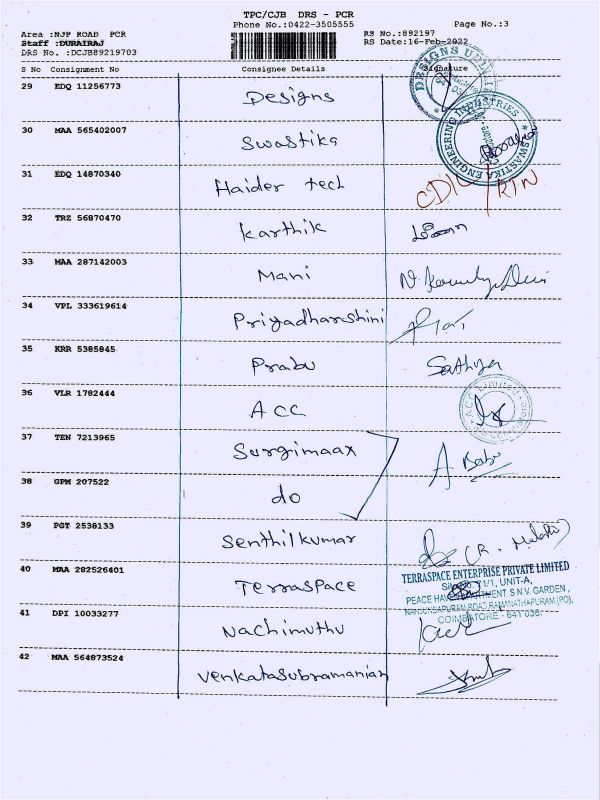 TPC/CJB DRS - PCR
Phone No.:0422-3505555
Page No.:3
Area :NJP ROAD PCR
Staff :DURAIRAJ
DRS No. :DCJB89219703
RS No.:892197
RS Date:16-Feb-2022
S No Consignment No Consignee Details Signature
29 EDQ 11256773 Designs
DESIGNS
30 MAA 565402007 Swastika
SWASTIKA ENGINEERING INDUSTRIES
31 EDQ 14870340 Haider tech
32 TRZ 56870470 Karthik
33 MAA 287142003 Mani
34 VPL 333619614 Priyadharshini
35 KRR 5385845 Prabu Sathya
36 VLR 1782444 ACC
37 TEN 7213965 Surgimaax A Babu
38 GPM 207522 do
39 PGT 2538133 Senthilkumar
40 MAA 282526401 Terraspace
TERRASPACE ENTERPRISE PRIVATE LIMITED
71/1, UNIT-A,
S.N.V. GARDEN,
RAMNATHAPURAM (PO),
COIMBATORE - 641 036.
41 DPI 10033277 Nachimuthu
42 MAA 564873524 Venkatasubramanian